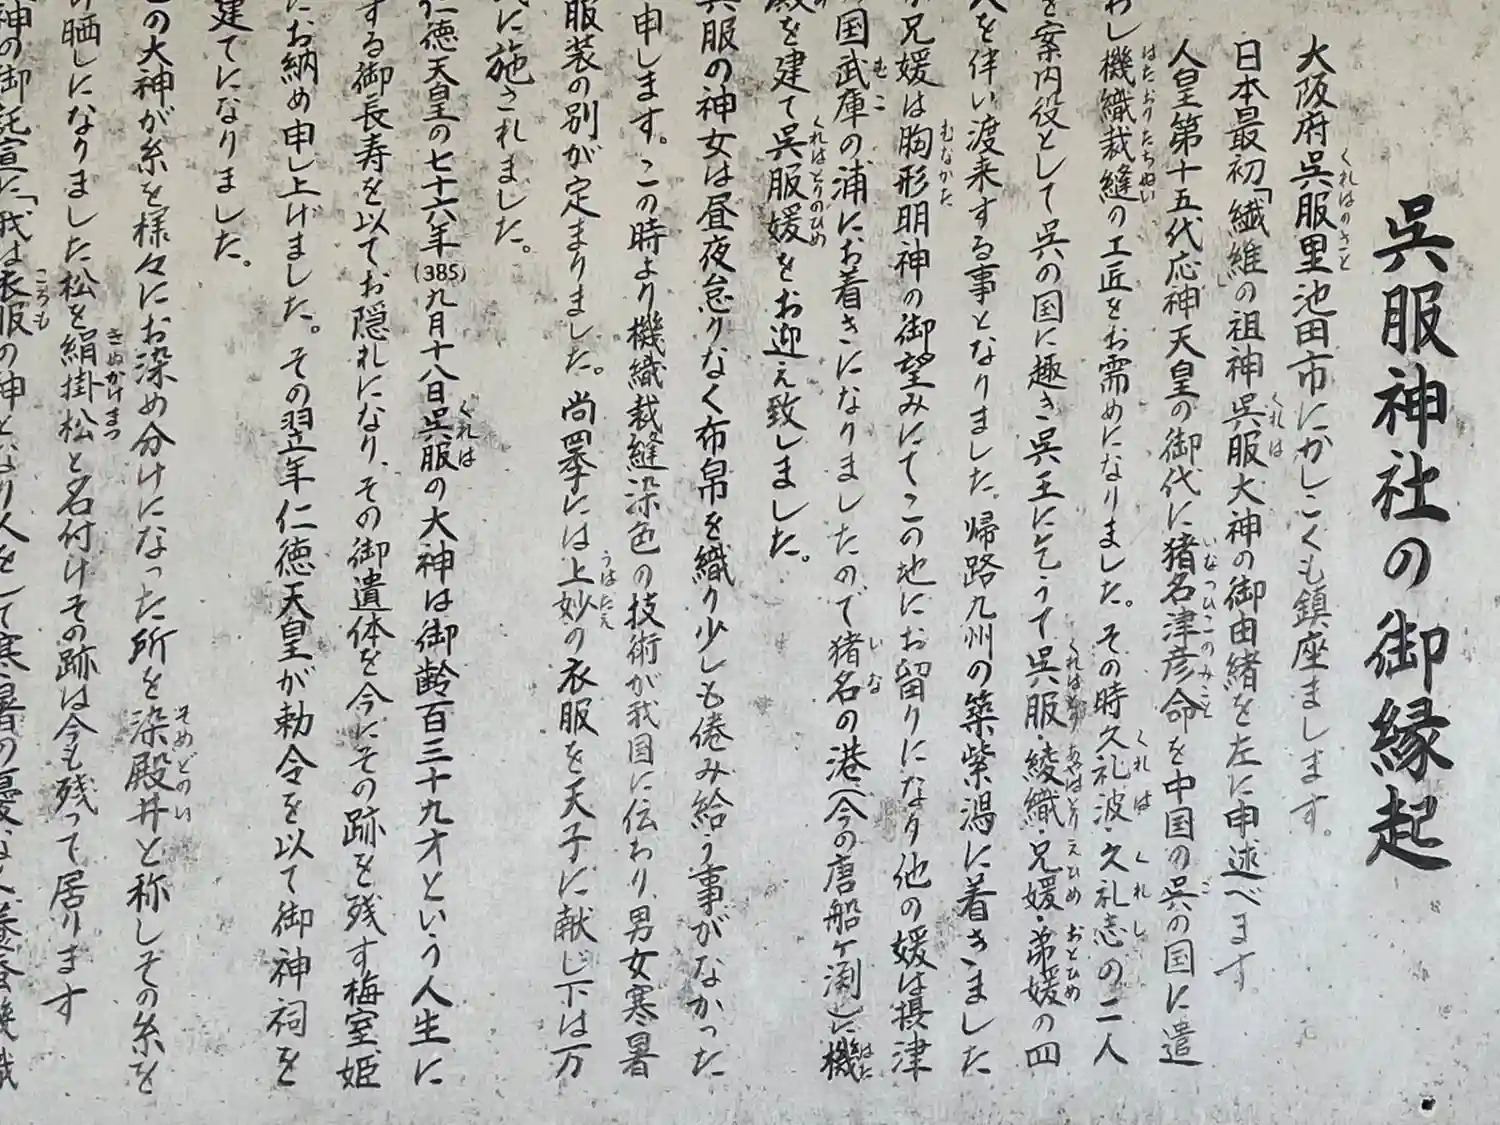 呉服神社の御縁起
大阪府呉服里池田市にかしこくも鎮座まします。
くれはのさと
日本最初「繊維」の祖神呉服大神の御由緒を左に申述べます
くれは
人皇第十五代応神天皇の御代に猪名津彦命を中国の呉の国に遣
いなつひこのみこと
ご
わし機織裁縫の工匠をお需めになりました。その時久礼波・久礼志の二人
はたおりたちぬい
くれは
くれし
を案内役として呉の国に趣き呉王にこうて呉服・綾織・兄媛・弟媛の四
くれはとり
あやはとり
えひめ
おとひめ
人を伴い渡来する事となりました。帰路九州の築紫潟に着きました
が兄媛は胸形明神の御望みにてこの地にお留りになり他の媛は摂津
むなかた
国武庫の浦にお着きになりましたので猪名の港(今の唐船ヶ渕)に機
むこ
いな
はた
殿を建て呉服媛をお迎え致しました。
くれはとりのひめ
呉服の神女は昼夜怠りなく布帛を織り少しも倦み給う事がなかった
申します。この時より機織裁縫染色の技術が我国に伝わり、男女寒暑
服装の別が定まりました。尚四季には上妙の衣服を天子に献じ下は万
うはたえ
に施されました。
仁徳天皇の七十六年(385)九月十八日呉服の大神は御齢百三十九才という人生に
くれは
する御長寿を以てお隠れになり、その御遺体を今にその跡を残す梅室姫
にお納め申し上げました。その翌年仁徳天皇が勅令を以て御神祠を
建てになりました。
この大神が糸を様々にお染め分けになった所を染殿井と称しその糸を
そめどのい
け晒しになりました松を絹掛松と名付けその跡は今も残って居ります
きぬかけまつ
神の御託宣に「我は衣服の神となり人をして寒暑の憂な
ころも